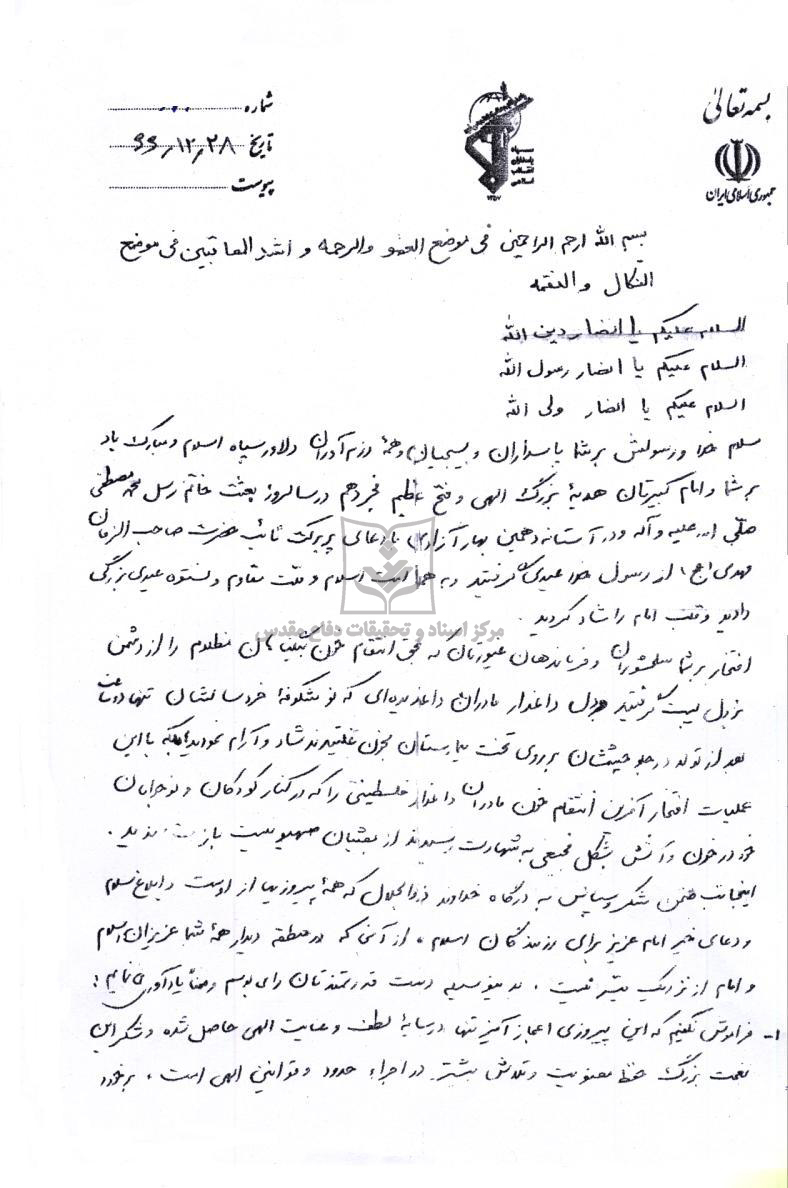 بسمه تعالی
جمهوری اسلامی ایران
۱۳۵۷
شماره
تاریخ ۶۶/۱۲/۲۸
پیوست
بسم الله ارحم الراحمین فی موضع العفو والرحمه و اشد المعاقبین فی موضع
النکال والنقمه
السلام علیکم یا انصار دین الله
السلام علیکم یا انصار رسول الله
السلام علیکم یا انصار ولی الله
سلام خدا و رسولش بر شما پاسداران و بسیجیان و همهٔ رزم آوران دلاور سپاه اسلام و مبارک باد
بر شما و امام کبیرتان هدیهٔ بزرگ الهی و فتح عظیم فجر دهم در سالروز بعثت خاتم رسل محمد مصطفی
صلی الله علیه و آله و در آستانه دهمین بهار آزادی با دعای پربرکت نائب حضرت صاحب الزمان
مهدی (عج) از رسول خدا عیدی گرفتید و به همه امت اسلام و ملت مقاوم و نستوه عیدی بزرگی
دادید و قلب امام را شاد کردید.
افتخار بر شما سلحشوران و فرماندهان غیورتان که بحق انتقام خون مظلوم را از دشمن
بزدل گرفتید و دل داغدار مادران داغدیده‌ای که نوشکوفهٔ خردسالشان تنها دو ساعت
بعد از تولد در جلو چشمشان بر روی تخت بیمارستان بخون غلتیدند شاد و آرام نمودید بلکه با این
عملیات افتخار آفرین انتقام خون مادران داغدار فلسطینی را که در کنار کودکان و نوجوانان
خود در خون و آتش بشکل فجیعی به شهادت رسیدند از بعثیان صهیونیست باز
اینجانب ضمن شکر و سپاس به درگاه خداوند ذوالجلال که همهٔ پیروزیها از اوست و ابلاغ سلام
و دعای خیر امام عزیز برای رزمندگان اسلام، از آنجا که در منطقه دیدار همهٔ شما عزیزان اسلام
و امام از نزدیک میسر نیست، بدینوسیله دست قدرتمندتان را می بوسم و ضمناً یادآوری می نمایم:
۱- فراموش نکنیم که این پیروزی اعجاز آمیز تنها در سایهٔ لطف و عنایت الهی حاصل شده و شکر این
نعمت بزرگ حفظ معنویت و تلاش بیشتر در اجراء حدود و قوانین الهی است، برخورد
مرکز اسناد و تحقیقات دفاع مقدس